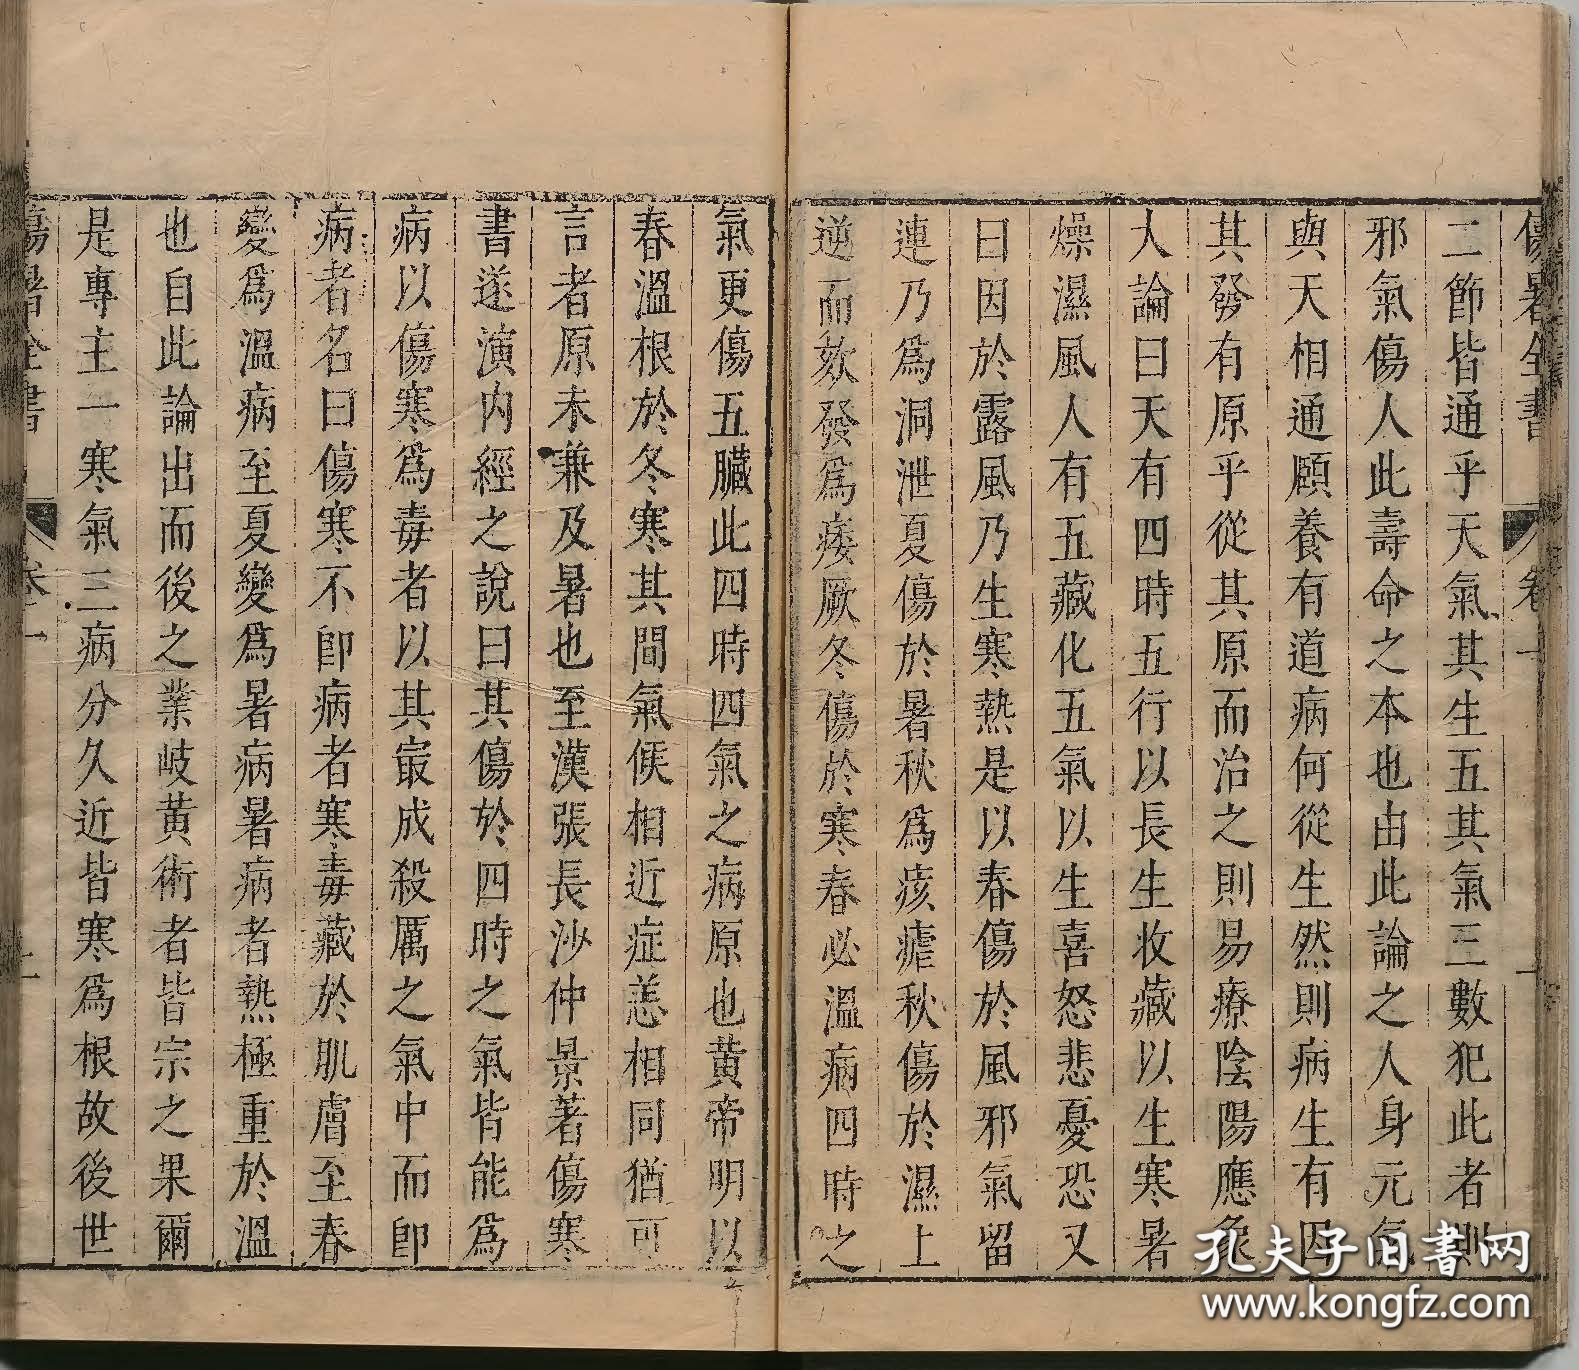 傷暑全書 卷上
二節皆通乎天氣其生五其氣三數犯此者則
邪氣傷人此壽命之本也由此論之人身元氣
與天相通頤養有道病何從生然則病生有因
其發有原乎從其原而治之則易療陰陽應象
大論曰天有四時五行以長生收藏以生寒暑
燥濕風人有五藏化五氣以生喜怒悲憂恐又
曰因於露風乃生寒熱是以春傷於風邪氣留
連乃爲洞泄夏傷於暑秋爲痎瘧秋傷於濕上
逆而欬發爲痿厥冬傷於寒春必溫病四時之
氣更傷五臟此四時四氣之病原也黃帝明以
春溫根於冬寒其間氣候相近症恙相同猶可
言者原未兼及暑也至漢張長沙仲景著傷寒
書遂演內經之說曰其傷於四時之氣皆能爲
病以傷寒爲毒者以其㝡成殺厲之氣中而卽
病者名曰傷寒不卽病者寒毒藏於肌膚至春
變爲溫病至夏變爲暑病暑病者熱極重於溫
也自此論出而後之業岐黃術者皆宗之果爾
是專主一寒氣三病分久近皆寒爲根故後世
傷暑全書 卷上 二
孔夫子旧書网
www.kongfz.com